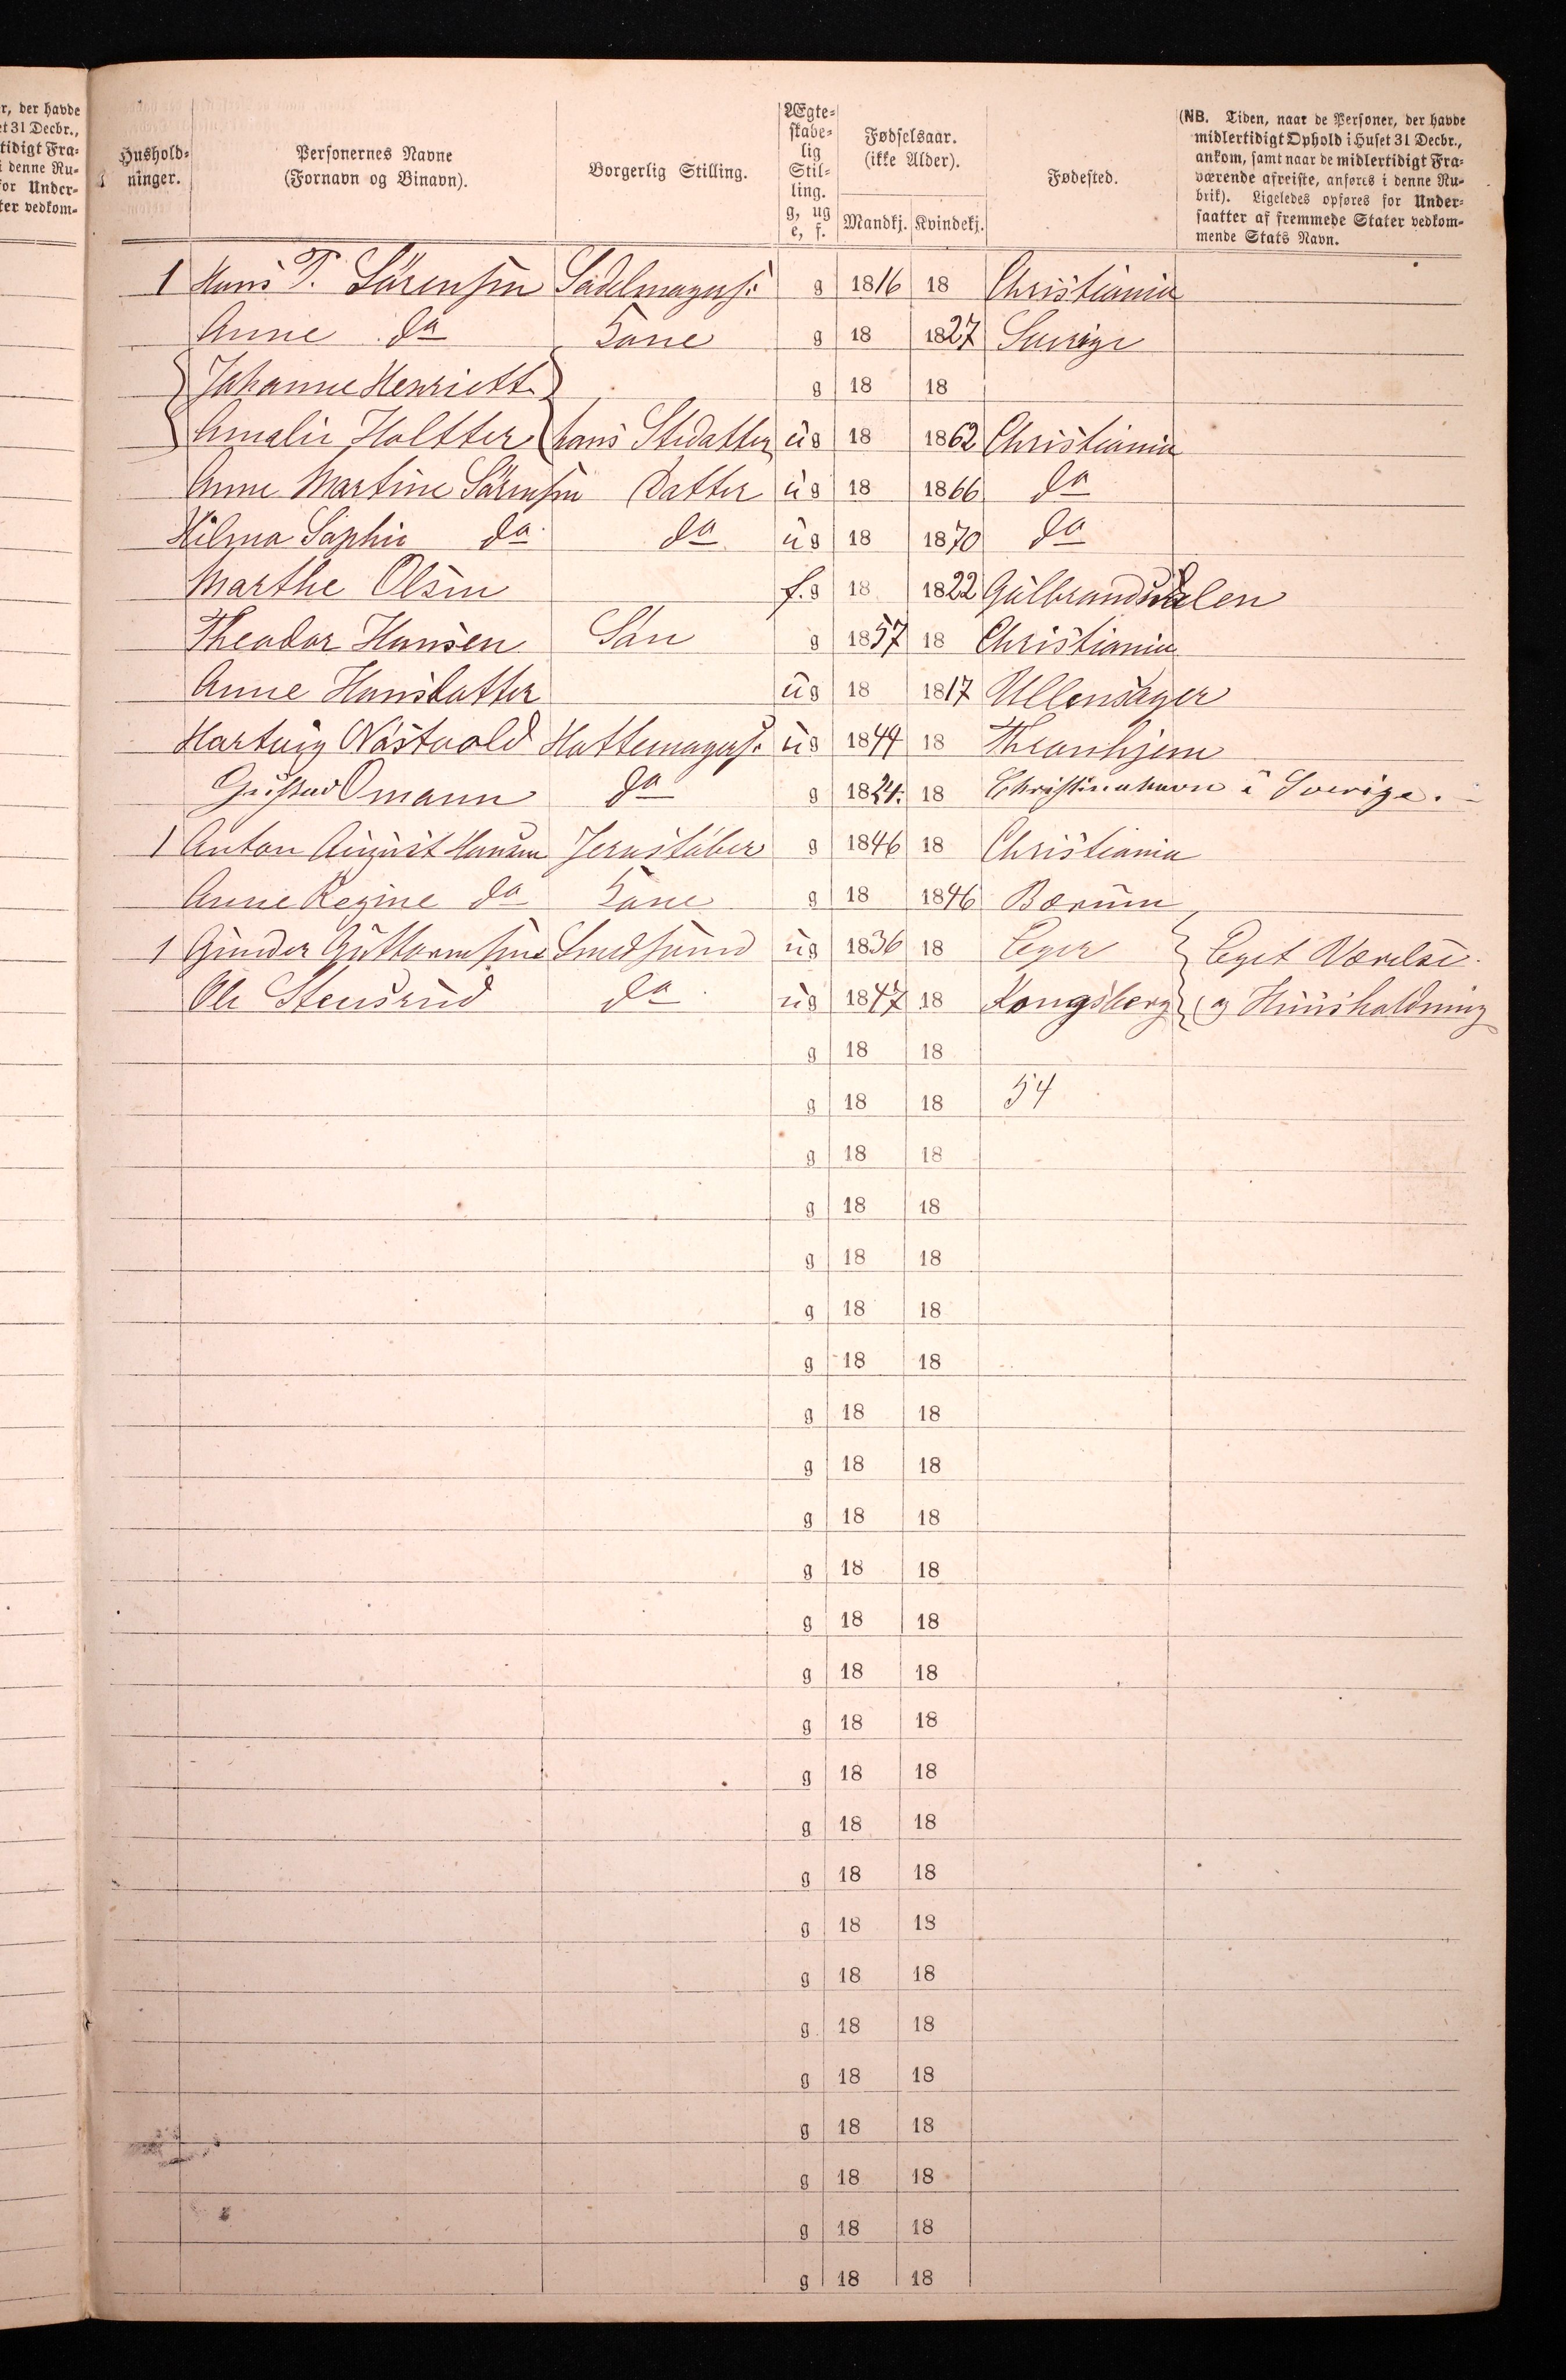 r, der havde
et 31 Decbr.,
tidigt Fra-
i denne Ru-
for Under-
ter vedkom-
Hushold-
ninger.
Personernes Navne
(Fornavn og Binavn).
Borgerlig Stilling.
Ægte-
skabe-
lig
Stil-
ling.
g, ug
e, f.
Fødselsaar.
(ikke Alder).
Mandkj. Kvindekj.
Fødested.
(NB. Tiden, naar de Personer, der havde
midlertidigt Ophold i Huset 31 Decbr.,
ankom, samt naar de midlertidigt Fra-
værende afreiste, anføres i denne Ru-
brik). Ligeledes opføres for Under-
saatter af fremmede Stater vedkom-
mende Stats Navn.
1 Hans T. Sørensen Sadelmagers: g 1816 18 Christiania
Anne do Kone g 18 1827 Sverige
Johanne Henriett g 18 18
Amalie Holtter hans Stedatter ug 18 1862 Christiania
Anne Martine Sørensen Datter ug 18 1866 do
Hilma Sophie do do ug 18 1870 do
Marthe Olsen f. g 18 1822 Gulbrandsdalen
Theodor Hansen Søn g 1857 18 Christiania
Anne Hansdatter ug 18 1817 Ullensager
Hartvig Næstvold Hattemagers. ug 1844 18 Thronhjem
Gustav Omann do g 1824. 18 Christinahavn i Sverige.
1 Anton August Hansen Jernstøber g 1846 18 Christiania
Anne Regine do Kone g 18 1846 Bærum
1 Gunder Guttormsens Smedsvend ug 1836 18 Eger Eget Værelse
Ole Stensrud do ug 1847 18 Kongsberg og Huusholdning
g 18 18
g 18 18 54
g 18 18
g 18 18
g 18 18
g 18 18
g 18 18
g 18 18
g 18 18
g 18 18
g 18 18
g 18 18
g 18 18
g 18 18
g 18 18
g 18 18
g 18 18
g 18 18
g 18 18
g 18 18
g 18 18
g 18 18
g 18 18
g 18 18
g 18 18